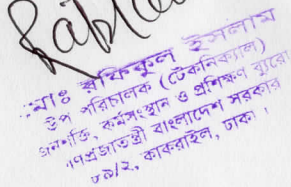 মোঃ রফিকুল ইসলাম
উপ পরিচালক (টেকনিক্যাল)
জনশক্তি, কর্মসংস্থান ও প্রশিক্ষণ ব্যুরো
গণপ্রজাতন্ত্রী বাংলাদেশ সরকার
৮৯/২, কাকরাইল, ঢাকা।